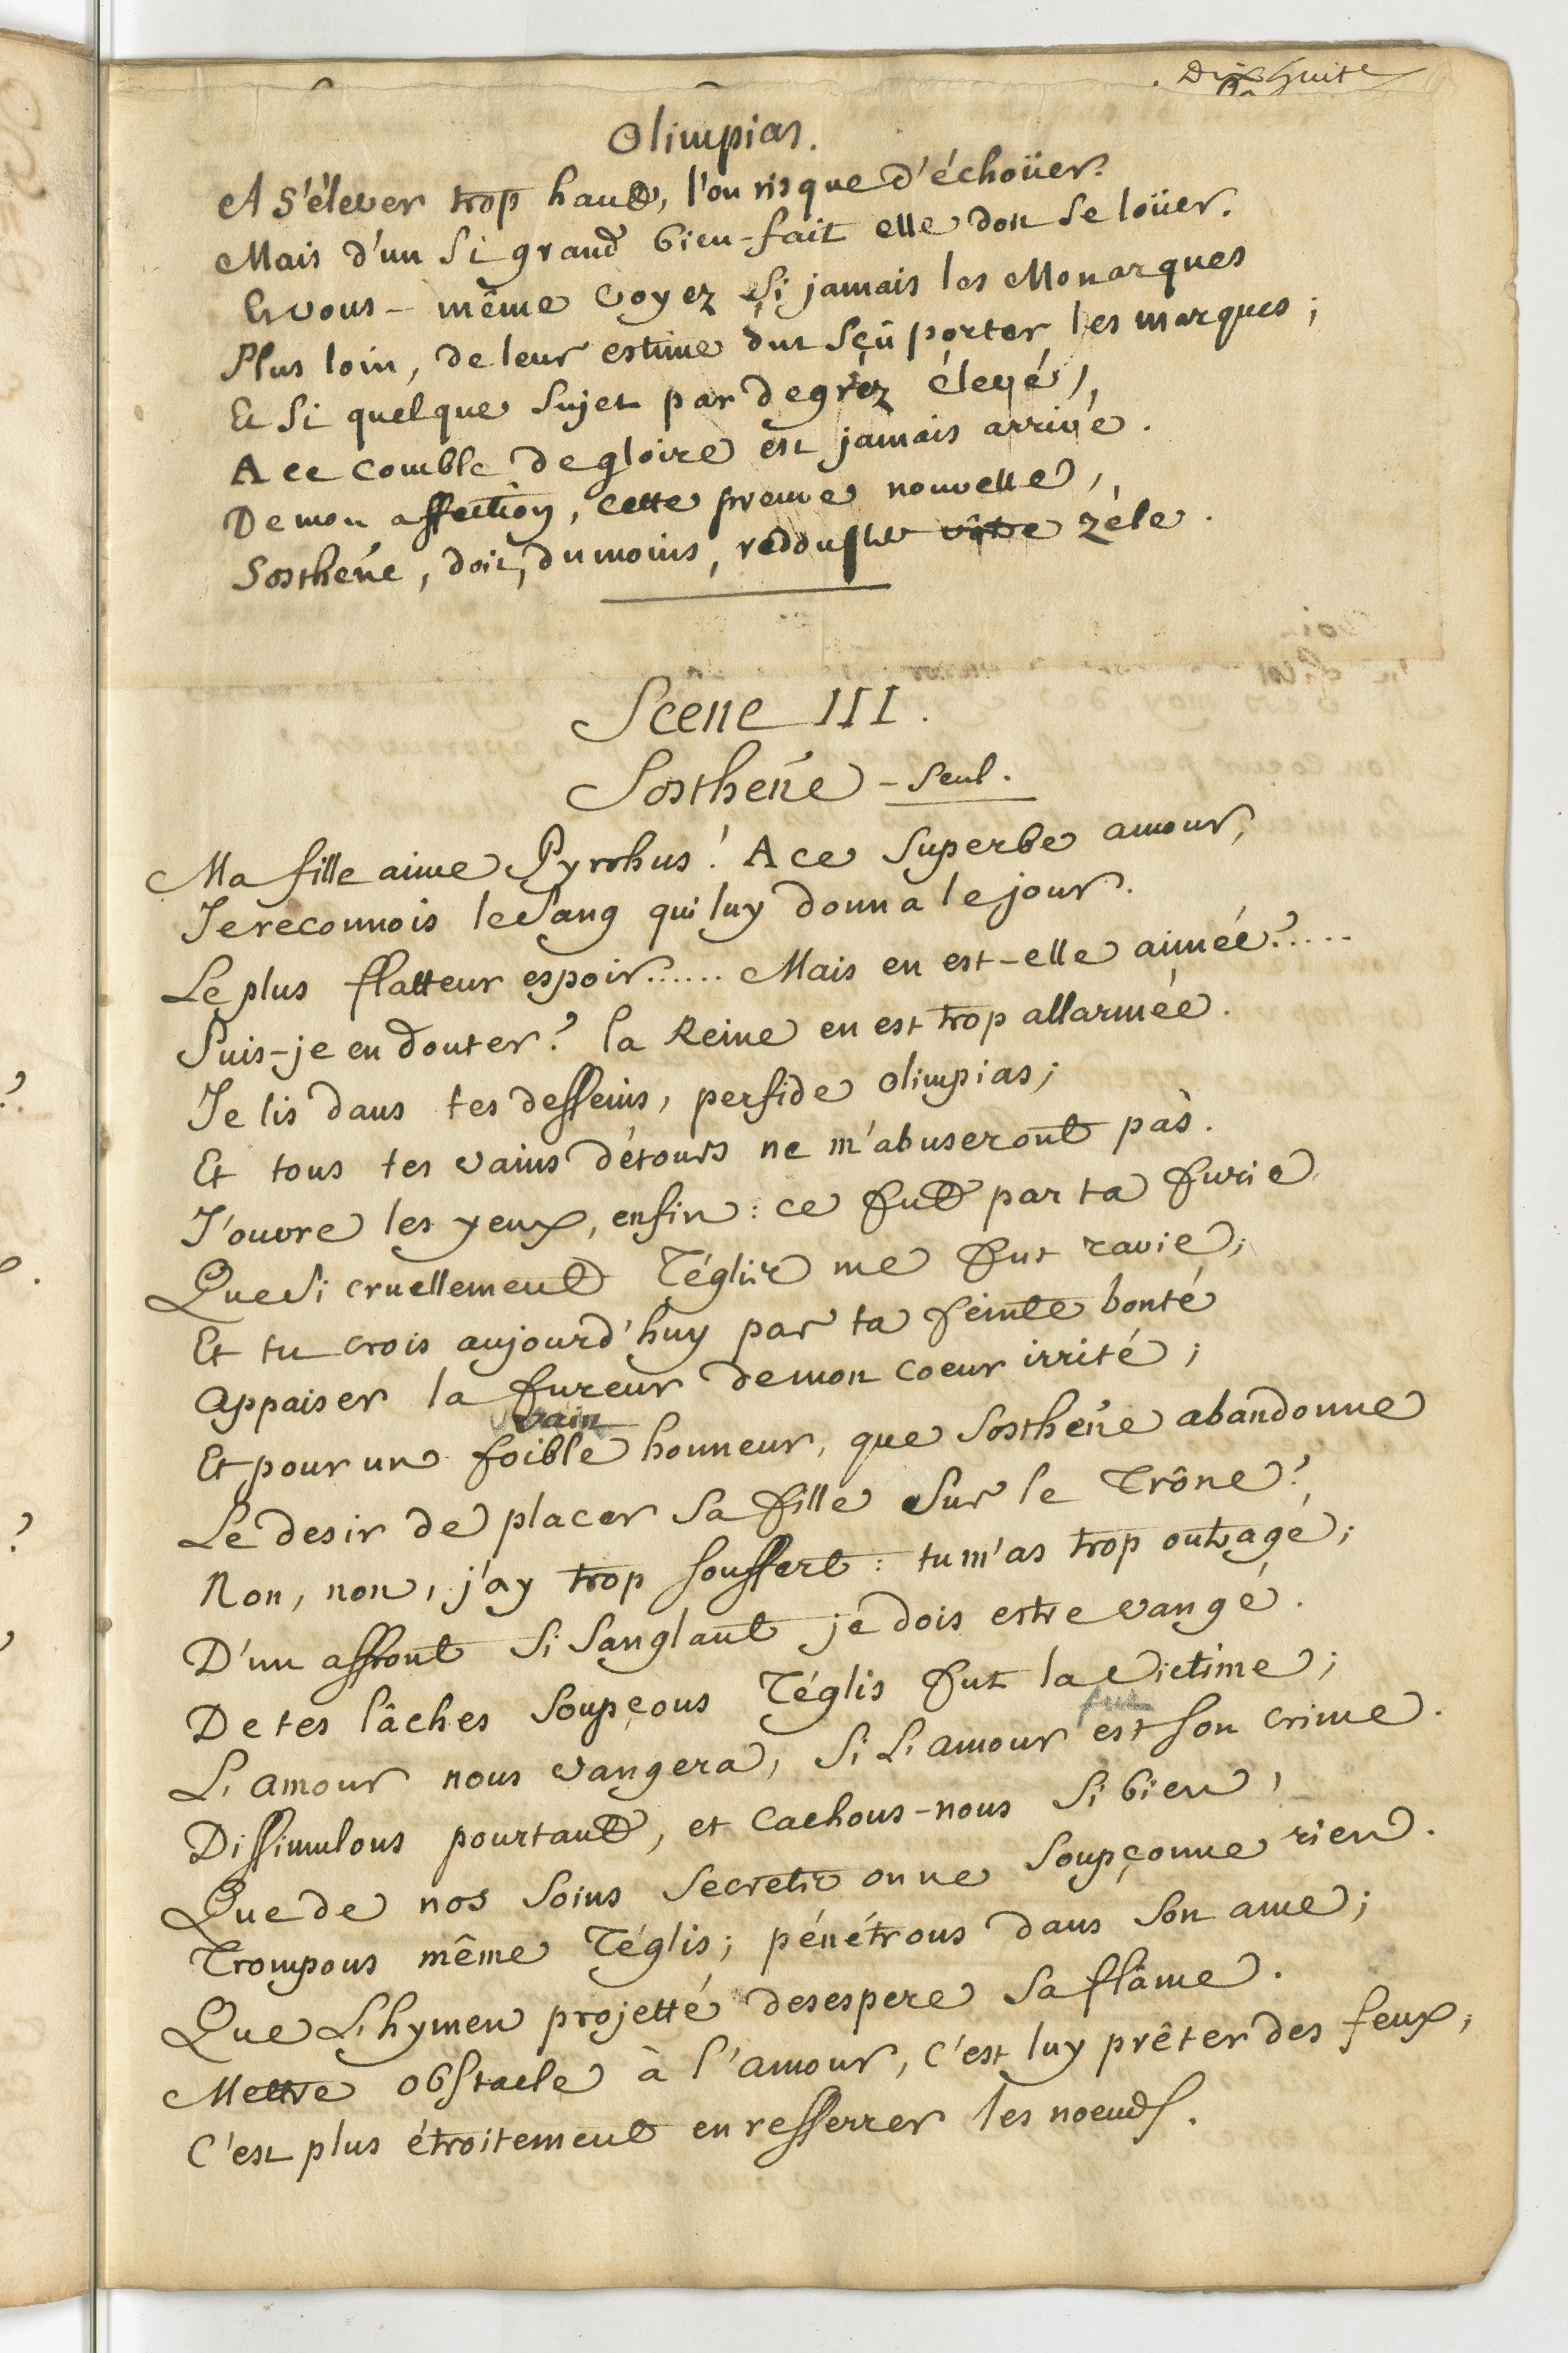 Dix huite
Olimpias.
A s'élever trop haut, l'on risque d'échoüer.
Mais d'un si grand bien-fait elle doit se loüer.
Et vous-même voyez si jamais les Monarques
Plus loin, de leur estime ont sçû porter les marques;
Et si quelque sujet par degréz élevé,
A ce comble de gloire est jamais arrivé.
De mon affection, cette preuve nouvelle,
Sosthéne, doit, du moins, redoubler vôtre zéle.
Scene III.
Sosthéne - seul.
Ma fille aime Pyrrhus! A ce superbe amour,
Je reconnois le sang qui luy donna le jour.
Le plus flatteur espoir...... Mais en est-elle aimée?.....
Puis-je en douter? la Reine en est trop allarmée.
Je lis dans tes desseins, perfide olimpias;
Et tous tes vains détours ne m'abuseront pas.
J'ouvre les yeux, enfin: ce fut par ta furie
Que si cruellement Téglis me fut ravie;
Et tu crois aujourd'huy par ta feinte bonté
Appaiser la fureur de mon coeur irrité;
vain
Et pour un foible honneur, que Sosthéne abandonne
Le desir de placer sa fille sur le Trône?
Non, non, j'ay trop souffert: tu m'as trop outragé;
D'un affront si sanglant je dois estre vangé.
De tes lâches soupçons Téglis fut la victime;
fut
L'amour nous vangera, si l'amour est son crime.
Dissimulons pourtant, et cachons-nous si bien,
Que de nos soins secrets on ne soupçonne rien.
Trompons même Téglis; pénétrons dans son ame;
Que l'hymen projetté desespere sa flâme.
Mettre obstacle à l'amour, c'est luy prêter des feux;
C'est plus étroitement en resserrer les noeuds.